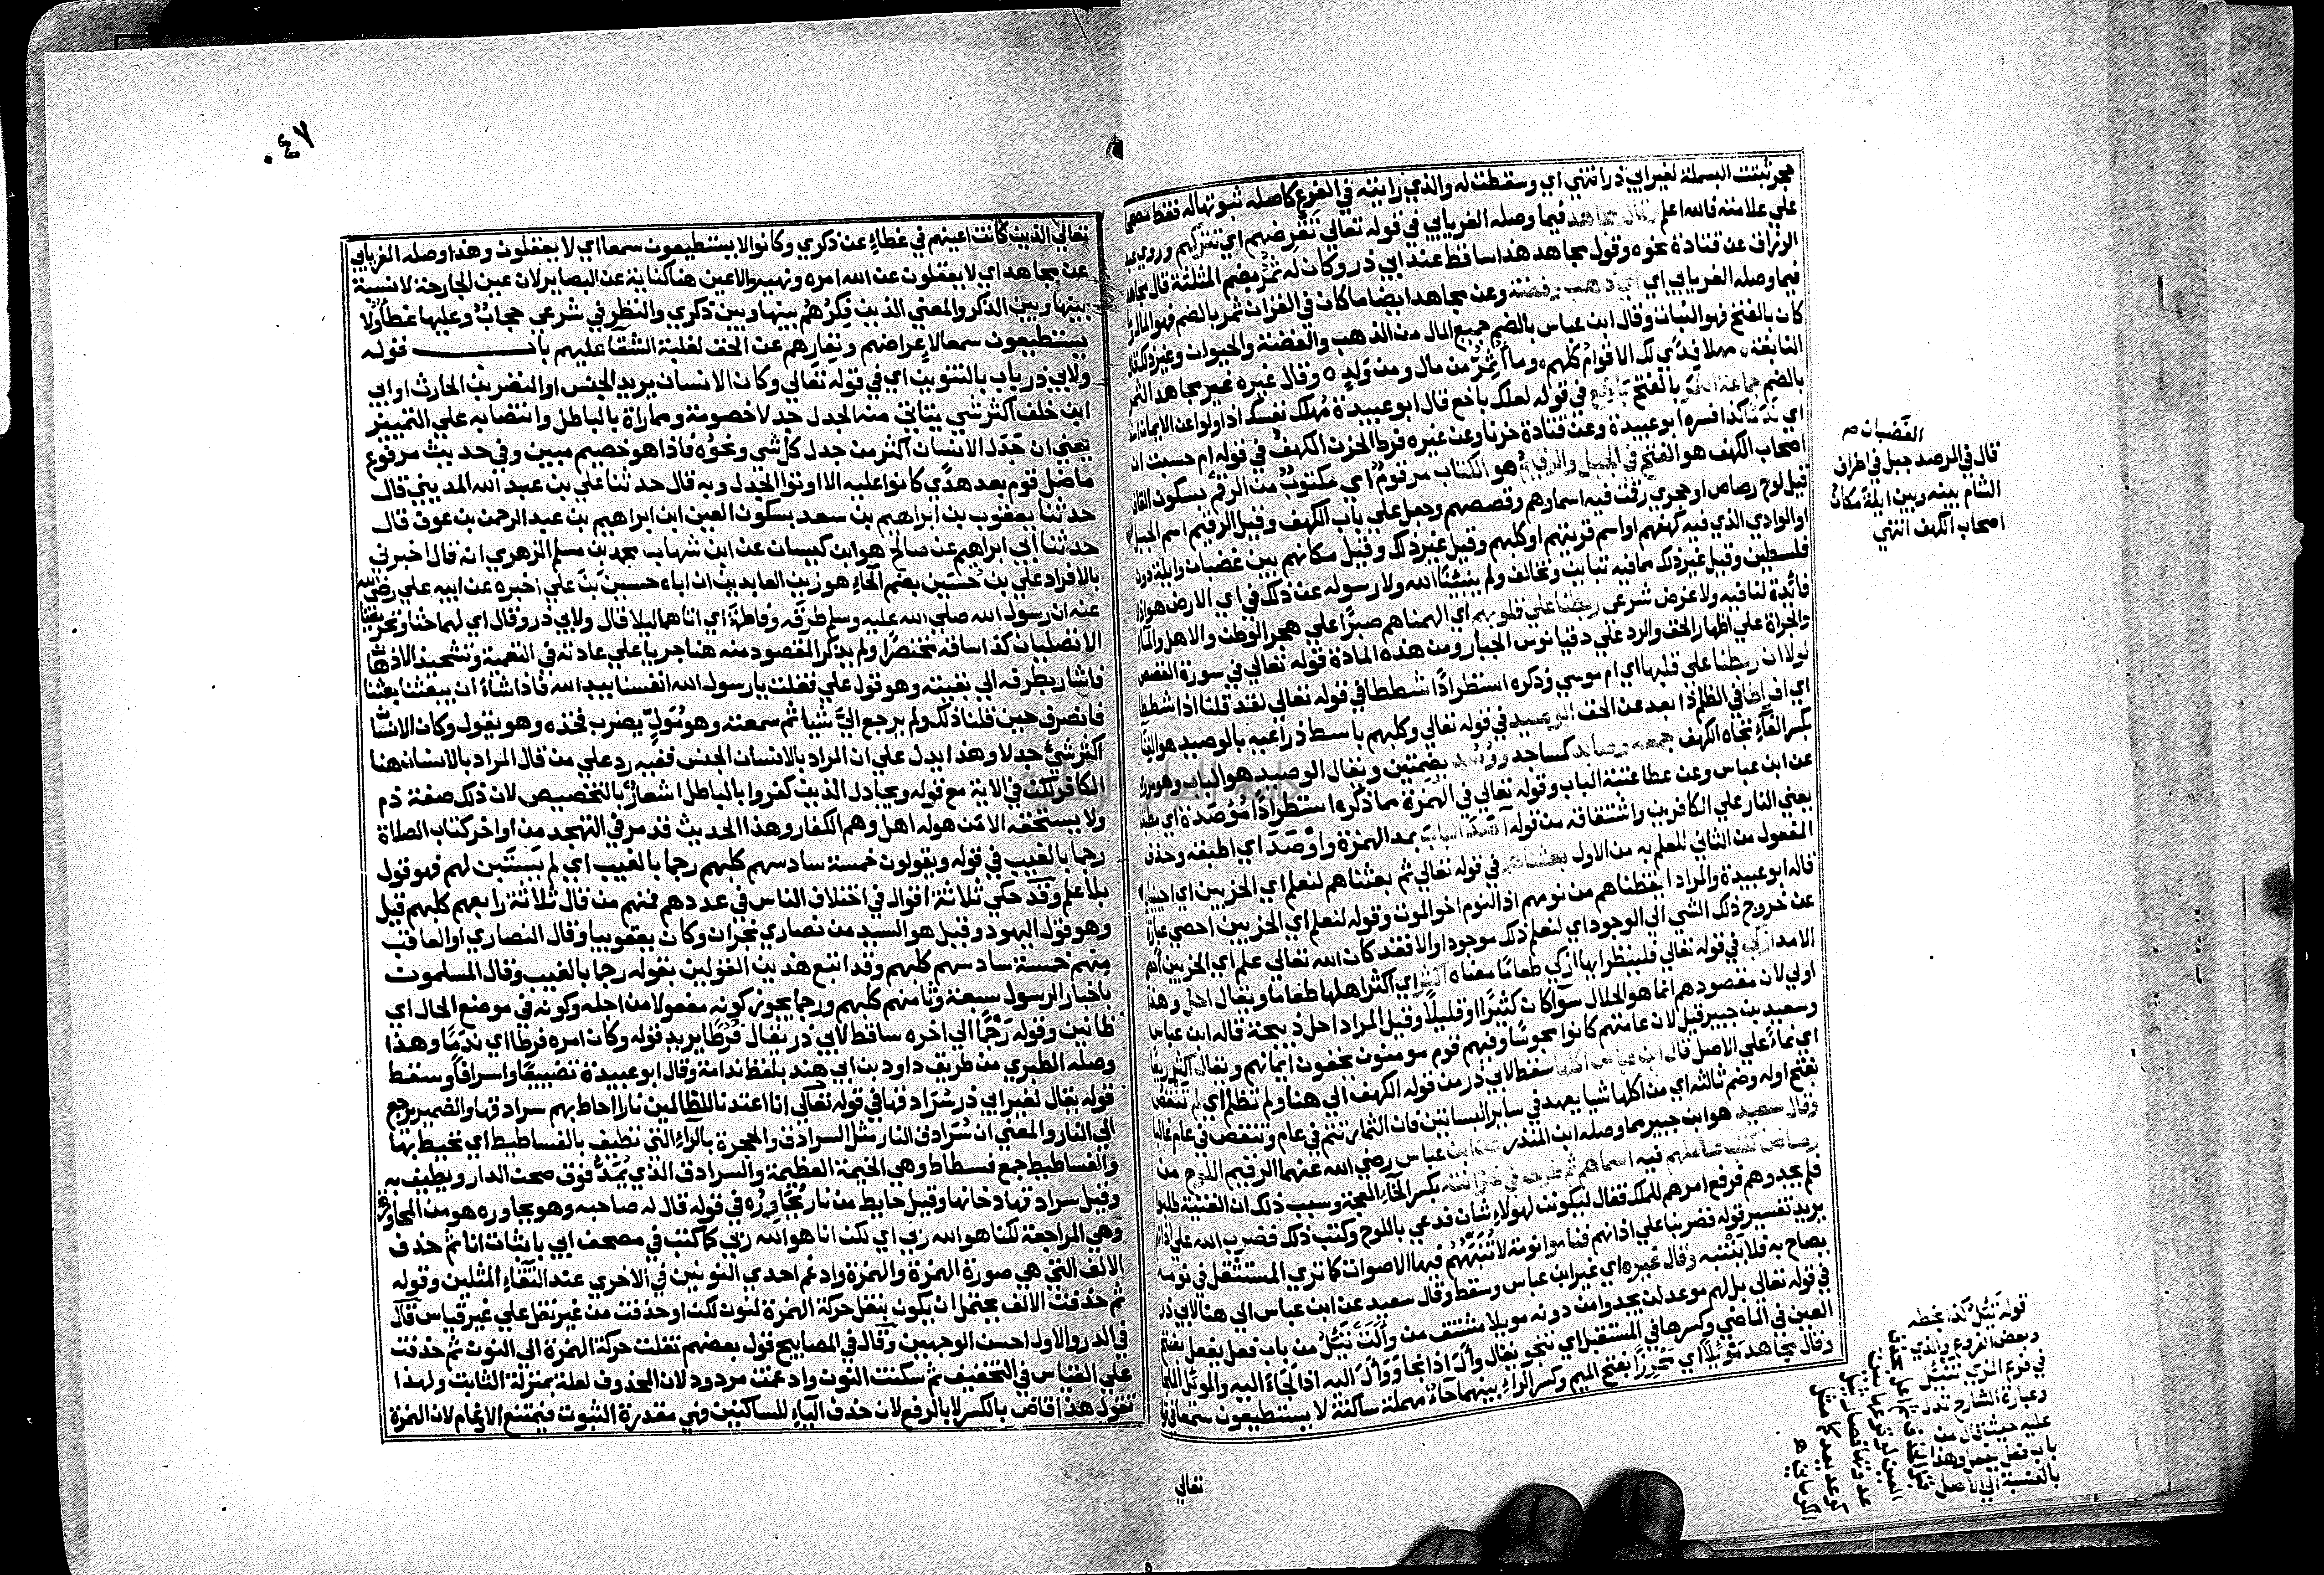 حجر ثبتت البسملة لغير ابي ذر انتهي اي وسقطت له والذي رايته في الفرع كاصله ثبوتها له فقط مصححا
علي علامته فالله اعلم وقال مجاهد فيما وصله الفريابي في قوله تعالي تقرضهم اي تتركهم وروي عبد
الرزاق عن قتادة نحوه وقول مجاهد هذا ساقط عند ابي ذر وكان له ثمر بضم المثلثة قال مجاهد
فيما وصله الفريابي اي ذهب وفضة وعن مجاهد ايضا ما كان في القران ثمر بالضم فهو المال وما
كان بالفتح فهو النبات وقال ابن عباس بالضم جميع المال من الذهب والفضة والحيوان وغير ذلك قال
النابغة مهلا فدي لك الاقوام كلهم وما اثمر من مال ومن ولد وقال غيره غير مجاهد الثمر
بالضم جماعة الثمر بالفتح باخع في قوله لعلك باخع قال ابو عبيدة مهلك نفسك اذا ولوا عن الايمان اسفا
اي ندما كذا فسره ابو عبيدة وعن قتادة حزنا وعن غيره فرط الحزن الكهف في قوله ام حسبت ان
اصحاب الكهف هو الفتح في الجبل والرقيم هو الكتاب مرقوم اي مكتوب من الرقم بسكون القاف
قيل لوح رصاص او حجري رقمت فيه اسماؤهم وقصصهم وجعل علي باب الكهف وقيل الرقيم اسم الجبل
او الوادي الذي فيه كهفهم او اسم قريتهم او كلبهم وقيل غير ذلك وقيل مكانهم بين غضبان وايلة دون
فلسطين وقيل غير ذلك مما فيه تباين وتخالف ولم ينبئنا الله ولا رسوله عن ذلك في اي الارض هو اذ لا
فائدة لنا فيه ولا غرض شرعي ربطنا علي قلوبهم اي الهمناهم صبرا علي هجر الوطن والاهل والمال
والجراة علي اظهار الحق والرد علي دقيانوس الجبار ومن هذه المادة قوله تعالي في سورة القصص
لولا ان ربطنا علي قلبها اي ام موسي وذكره استطرادا شططا في قوله تعالي لقد قلنا اذا شططا
اي افراطا في الظلم ذا بعد عن الحق الوصيد في قوله تعالي وكلبهم باسط ذراعيه بالوصيد هو الفناء
بكسر الفاء تجاه الكهف جمعه وصايد كمساجد ووصد بضمتين ويقال الوصيد هو الباب وهو مروي
عن ابن عباس وعن عطا عتبة الباب وقوله تعالي في الهمزة مما ذكره استطرادا مؤصدة اي مطبقة
يعني النار علي الكافرين واشتقاقه من قوله آصد الباب بمد الهمزة واوصد اي اطبقه وحذف
المفعول من الثاني للعلم به من الاول بعثناهم في قوله تعالي ثم بعثناهم لنعلم اي الحزبين اي احييناهم
قاله ابو عبيدة والمراد ايقظناهم من نومهم اذ النوم اخو الموت وقوله لنعلم اي الحزبين احصي عبارة
عن خروج ذلك الشي الي الوجود اي لنعلم ذلك موجودا والا فقد كان الله تعالي علم اي الحزبين احصي
الامد ازكي في قوله تعالي فلينظر ايها ازكي طعاما معناه اكثر اي اكثر اهلها طعاما ويقال احل وهذا
اولي لان مقصودهم انما هو الحلال سوآ كان كثيرا او قليلا وقيل المراد احل ذبيحة قاله ابن عباس
وسعيد بن جبير قيل لان عامتهم كانوا مجوسا وفيهم قوم مومنون يخفون ايمانهم ويقال اكثر ريعا
اي نماء علي الاصل قال ابن عباس اكلها سقط لابي ذر من قوله الكهف الي هنا ولم تظلم اي لم تنقص
بفتح اوله وضم ثالثه اي من اكلها شيا يعهد في سائر البساتين فان الثمار تتم في عام وتنقص في عام غالبا
وقال سعيد هو ابن جبير مما وصله ابن المنذر عن ابن عباس رضي الله عنهما الرقيم اللوح من
رصاص كتب عاملهم فيه اسماهم ثم طرحه في خزانته بكسر الخاء المعجمة وسبب ذلك ان الفتية طلبوا
فلم يجدوهم فرفع امرهم للملك فقال ليكونن لهولاء شان فدعي باللوح وكتب ذلك فضرب الله علي اذانهم
يريد تفسير قوله فضربنا علي اذانهم فناموا نومة لا تنبههم فيها الاصوات كما تري المستثقل في نومه
يصاح به فلا ينتبه وقال غيره اي غير ابن عباس وسقط وقال سعيد عن ابن عباس الي هنا لابي ذر
في قوله تعالي بل لهم موعد لن يجدوا من دونه مويلا مشتق من وألت تئل من باب فعل يفعل بفتح
العين في الماضي وكسرها في المستقبل اي تنجو يقال وأل اذا نجا ووأل اليه اذا لجاء اليه والموئل الملجا
وقال مجاهد موئلا اي محرزا بفتح الميم وكسر الراء بينهما حاء مهملة ساكنة لا يستطيعون سمعا في قوله
القضبان م
قال في المرصد جبل في اطراف
الشام بينه وبين ايلة مكان
اصحاب الكهف انتهي
قوله تيئل كذا بخطه
وبعض الفروع والذي
في فرع المزي تئيل
وعبارة الشارح تدل
عليه حيث قال من
باب فعل يفعل وهذا
بالنسبة الي الاصل
تعالي
٠٤٧
تعالي الذين كانت اعينهم في غطاء عن ذكري وكانوا لا يستطيعون سمعا اي لا يعقلون وهذا وصله الفريابي
عن مجاهد اي لا يعقلون عن الله امره ونهيه والاعين هنا كناية عن البصاير لان عين الجارحة لا نسبة
بينها وبين الذكر والمعني الذين فكرهم بينها وبين ذكري والنظر في شرعي حجاب وعليها غطاء ولا
يستطيعون سمعا لاعراضهم ونفارهم عن الحق لغلبة الشقاء عليهم باب قوله
ولابي ذر باب بالتنوين اي في قوله تعالي وكان الانسان يريد الجنس او النضر بن الحارث او ابي
ابن خلف اكثر شي يتاتي منه الجدل جدلا خصومة ومماراة بالباطل وانتصابه علي التمييز
يعني ان جدل الانسان اكثر من جدل كل شي ونحوه فاذا هو خصيم مبين وفي حديث مرفوع
ما ضل قوم بعد هدي كانوا عليه الا اوتوا الجدل وبه قال حدثنا علي بن عبد الله المديني قال
حدثنا يعقوب بن ابراهيم بن سعد بسكون العين ابن ابراهيم بن عبد الرحمن بن عوف قال
حدثنا ابي ابراهيم عن صالح هو ابن كيسان عن ابن شهاب محمد بن مسلم الزهري انه قال اخبرني
بالافراد علي بن حسين بضم الحاء هو زين العابدين ان اباه حسين بن علي اخبره عن ابيه علي رضي الله
عنه ان رسول الله صلي الله عليه وسلم طرقه وفاطمة اي اتاهما ليلا قال ولابي ذر وقال اي لهما حثا وتحريضا
الا تصليان كذا ساقه مختصرا ولم يذكر المقصود منه هنا جريا علي عادته في التعمية وتشحيذ الاذهان
فاشار بطرفه الي بقيته وهو قول علي فقلت يا رسول الله انفسنا بيد الله فاذا شاء ان يبعثنا بعثنا
فانصرف حين قلنا ذلك ولم يرجع الي شيا ثم سمعته وهو مول يضرب فخذه وهو يقول وكان الانسان
اكثر شي جدلا وهذا يدل علي ان المراد بالانسان الجنس ففيه رد علي من قال المراد بالانسان هنا
الكافر لكن في الاية مع قوله ويجادل الذين كفروا بالباطل اشعار بالتخصيص لان ذلك صفة ذم
ولا يستحقه الا من هو له اهل وهم الكفار وهذا الحديث قد مر في التهجد من اواخر كتاب الصلاة
رجما بالغيب في قوله ويقولون خمسة سادسهم كلبهم رجما بالغيب اي لم يستبن لهم فهو قول
بلا علم وقد حكي ثلاثة اقوال في اختلاف الناس في عددهم فمنهم من قال ثلاثة رابعهم كلبهم قيل
وهو قول اليهود وقيل هو السيد من نصاري نجران وكان يعقوبيا وقال النصاري او العاقب
منهم خمسة سادسهم كلبهم وقد اتبع هذين القولين بقوله رجما بالغيب وقال المسلمون
باخبار الرسول سبعة وثامنهم كلبهم ورجما يجوز كونه مفعولا من اجله وكونه في موضع الحال اي
ظانين وقوله رجما الي اخره ساقط لابي ذر يقال فرطا يريد قوله وكان امره فرطا اي ندما وهذا
وصله الطبري من طريق داود بن ابي هند بلفظ ندامة وقال ابو عبيدة تضييعا واسرافا وسقط
قوله يقال لغير ابي ذر سرادقها في قوله تعالي انا اعتدنا للظالمين نارا احاط بهم سرادقها والضمير يرجع
الي النار والمعني ان سرادق النار مثل السرادق والحجرة بالراء التي تطيف بالفساطيط اي تحيط بها
والفساطيط جمع فسطاط وهي الخيمة العظيمة والسرادق الذي يمد فوق صحن الدار ويطيف به
وقيل سرادقها دخانها وقيل حايط من نار يحاوره في قوله قال له صاحبه وهو يحاوره هو من المحاورة
وهي المراجعة لكنا هو الله ربي اي لكن انا هو الله ربي كما كتب في مصحف ابي باثبات انا ثم حذف
الالف التي هي صورة الهمزة والهمزة وادغم احدي النونين في الاخري عند التقاء المثلين وقوله
ثم حذفت الالف يحتمل ان يكون بنقل حركة الهمزة لنون لكن او حذفت من غير نقل علي غير قياس قال
في الدر والاول احسن الوجهين وقال في المصابيح قول بعضهم نقلت حركة الهمزة الي النون ثم حذفت
علي القياس في التخفيف ثم سكنت النون وادغمت مردود لان المحذوف لعلة بمنزلة الثابت ولهذا
تقول هذا قاض بالكسر لا بالرفع لان حذف الياء للساكنين فهي مقدرة الثبوت فيمتنع الادغام لان الهمزة